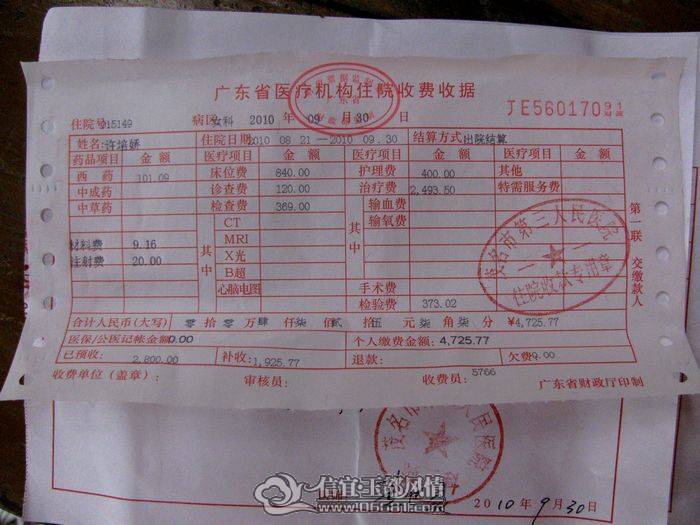 广东省医疗机构住院收费收据
住院号 915149 病区 女科 2010 年 09 月 30 JE560170 91
姓名: 许培娇 住院日期 2010 08 21—2010 09.30 结算方式 出院结算
药品项目 金额 医疗项目 金额 医疗项目 金额 医疗项目 金额
西药 101.09 床位费 840.00 护理费 400.00 其他
中成药 诊查费 120.00 治疗费 2,493.50 特需服务费
中草药 检查费 369.00 输血费
其中 CT 其中 输氧费
材料费 9.16 MRI
注射费 20.00 X光
B超
心脑电图 手术费
检验费 373.02
茂名市第三人民医院
住院收款专用章
第一联 交缴款人
合计人民币(大写) 零 拾 零 万 肆 仟 柒 佰 贰 拾 伍 元 柒 角 柒 分 ¥4,725.77
医保/公医记帐金额 0.00 个人缴费金额: 4,725.77
已预收: 2,800.00 补收: 1,925.77 退款: 欠费 0.00
收费单位(盖章): 审核员: 收费员: 5766 广东省财政厅印制
2010年9月30日
信宜玉都风情
www.06681.com